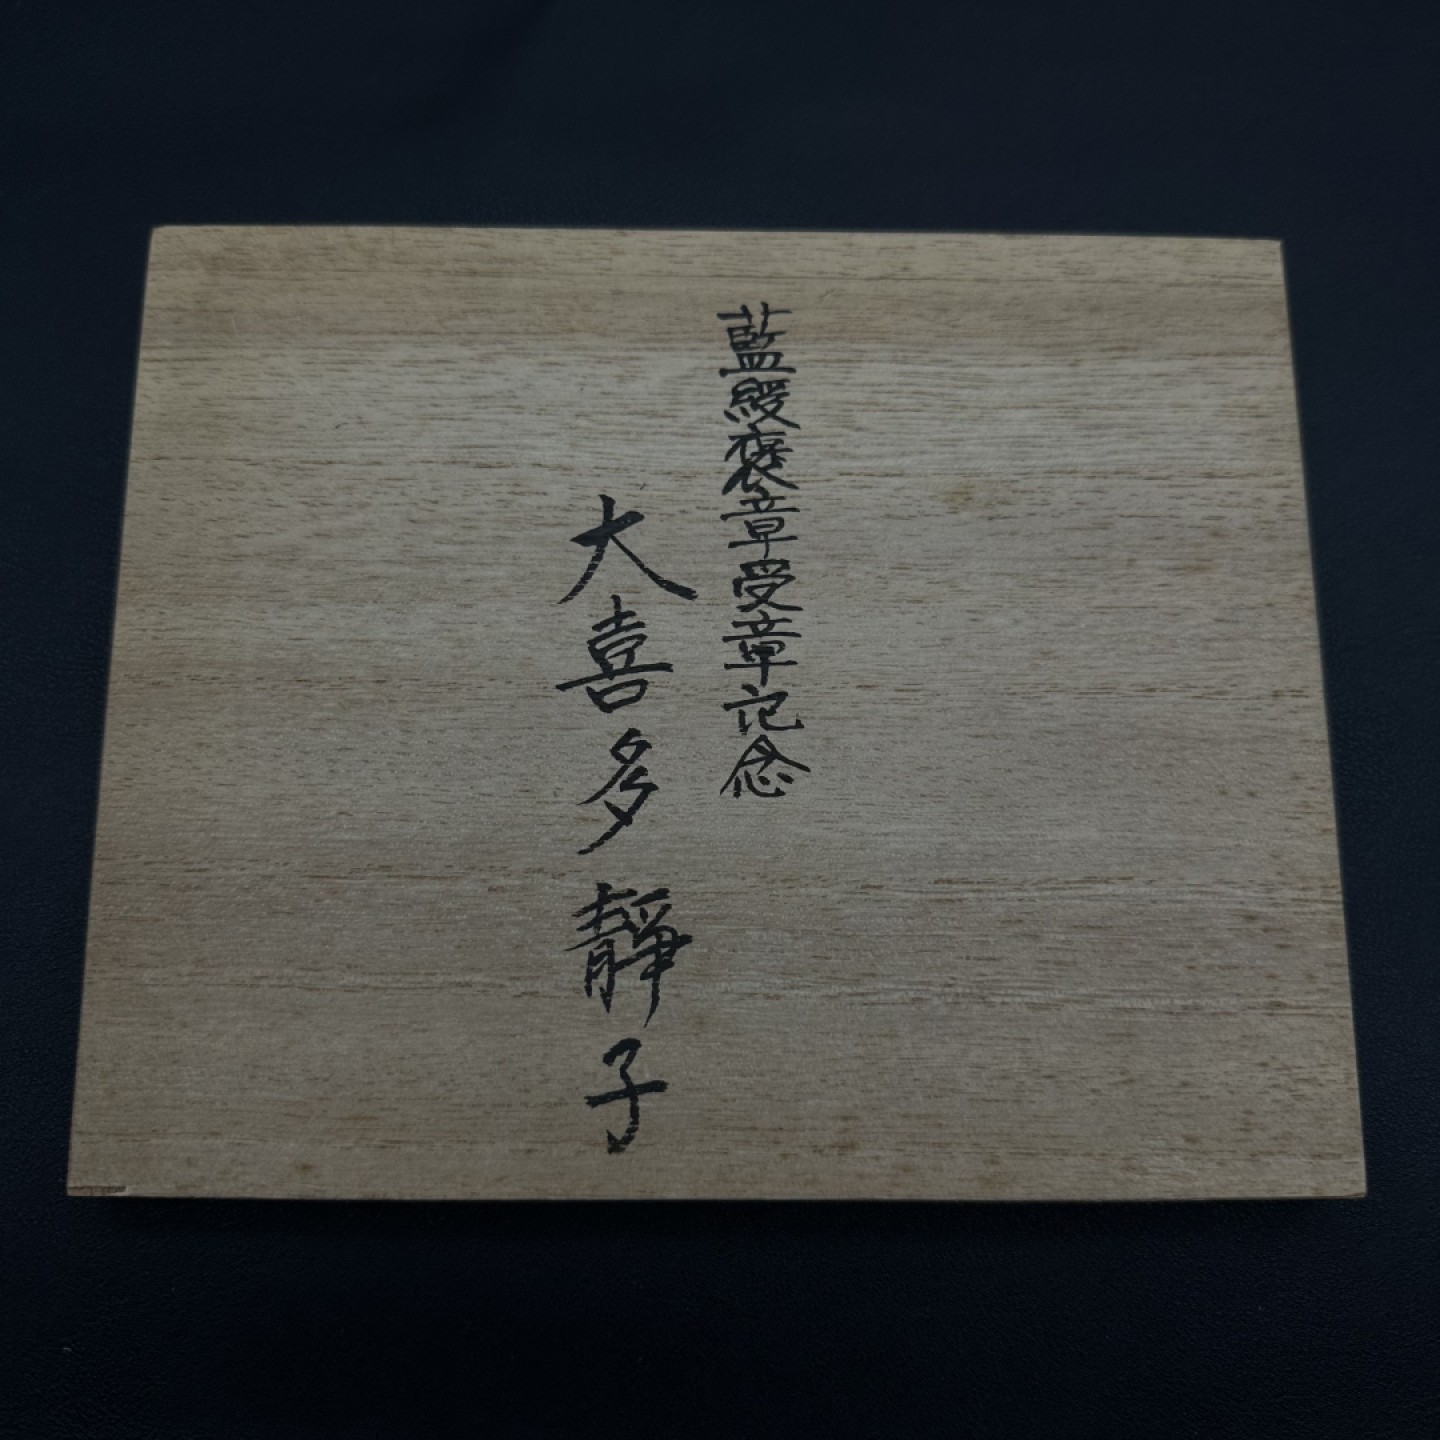 藍綬褒章受章記念
大喜多靜子